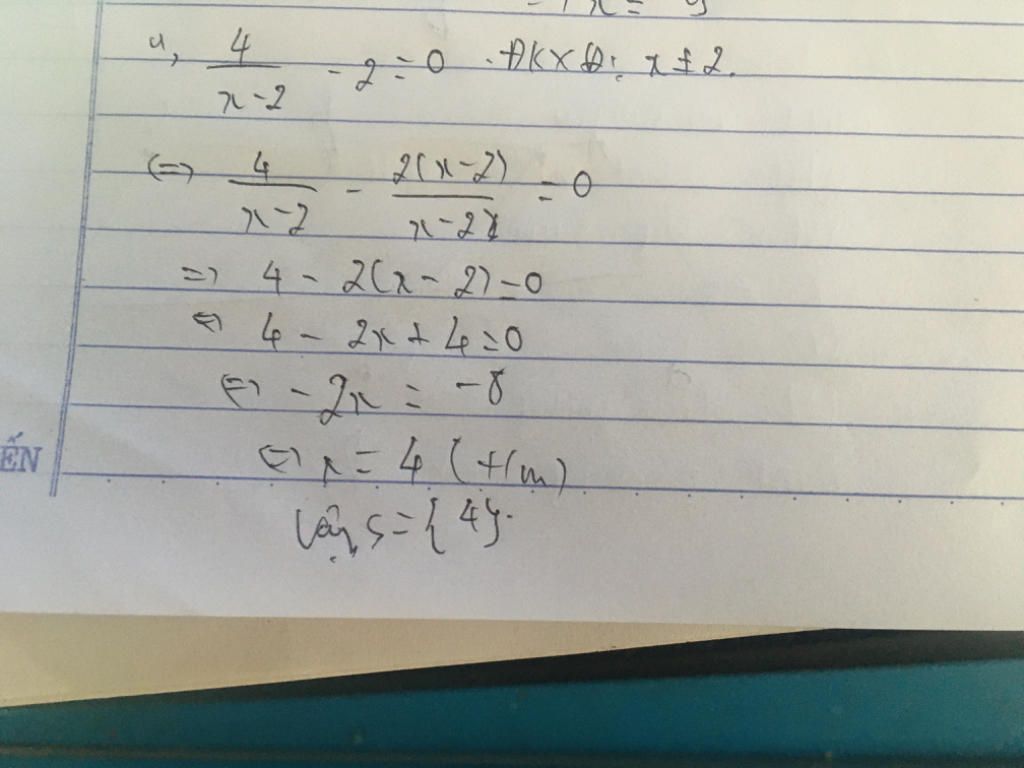 x =
4, 4/(x-2) - 2 = 0 . ĐKXĐ: x ≠ 2.
<=> 4/(x-2) - 2(x-2)/(x-2) = 0
=> 4 - 2(x - 2) = 0
<=> 4 - 2x + 4 = 0
<=> -2x = -8
<=> x = 4 (t/m)
ẾN
Vậy S = {4}.